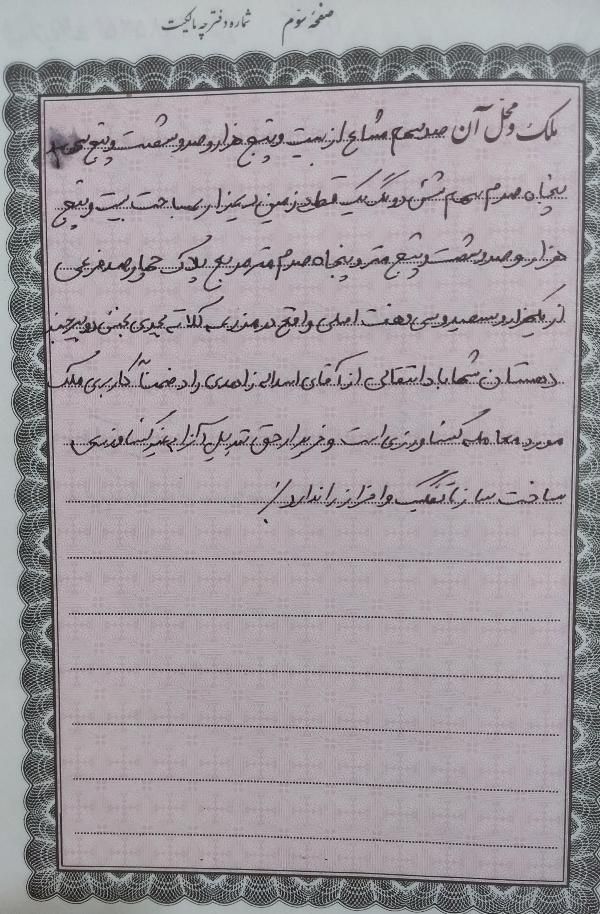 صفحه سوّم شماره دفترچه مالکیت
ملک و محلّ آن صد سهم مشاع از بیست و پنج هزار و صد و شصت و پنج سهم و
پنجاه صدم سهم شش دانگ یک قطعه زمین دیمزار بمساحت بیست و پنج
هزار و صد و شصت و پنج متر و پنجاه صدم متر مربع پلاک چهارصد فرعی
از یکهزار و سیصد و سی و هفت اصلی واقع در مزرعه کلاته بخش دو بیرجند
دهستان شهاباد انتقالی از آقای اسداله زاهدی راد ضمناً کاربری ملک
مورد معامله کشاورزی است و خریدار حق تبدیل آنرا به غیر کشاورزی
ساخت ساز یا تفکیک و افراز را ندارد./